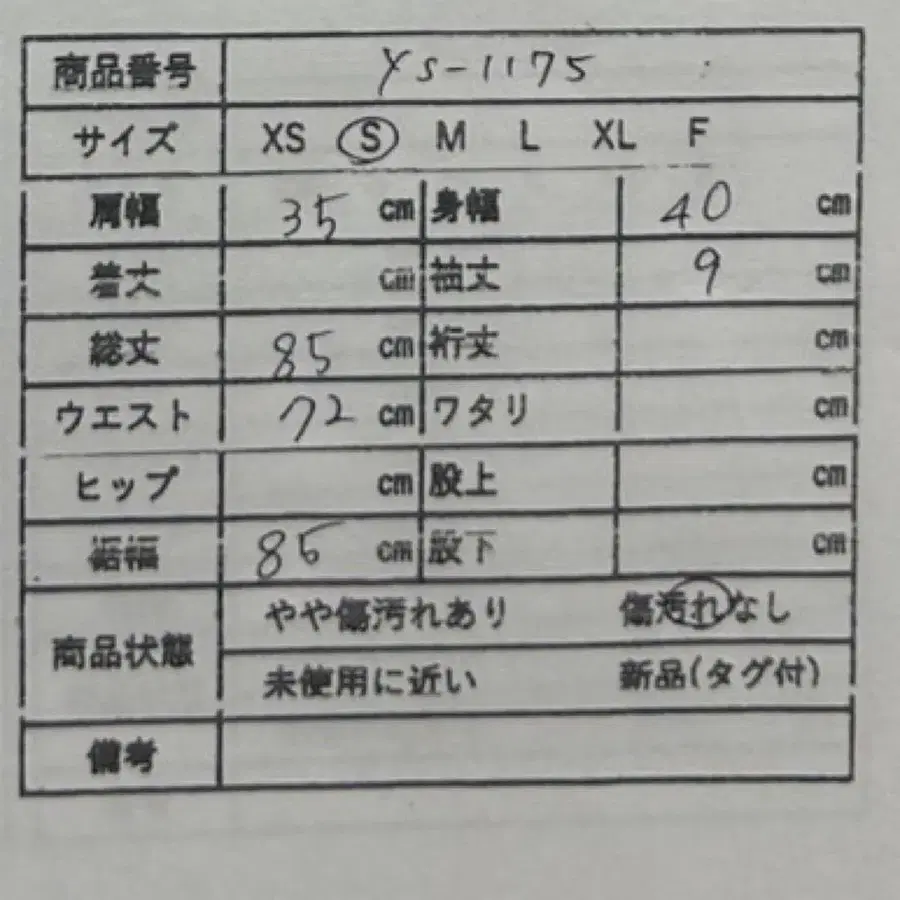 商品番号 YS-1175
サイズ XS S M L XL F
肩幅 35 cm 身幅 40 cm
着丈 cm 袖丈 9 cm
総丈 85 cm 裄丈 cm
ウエスト 72 cm ワタリ cm
ヒップ cm 股上 cm
裾幅 85 cm 股下 cm
商品状態 やや傷汚れあり 傷汚れなし
未使用に近い 新品(タグ付)
備考